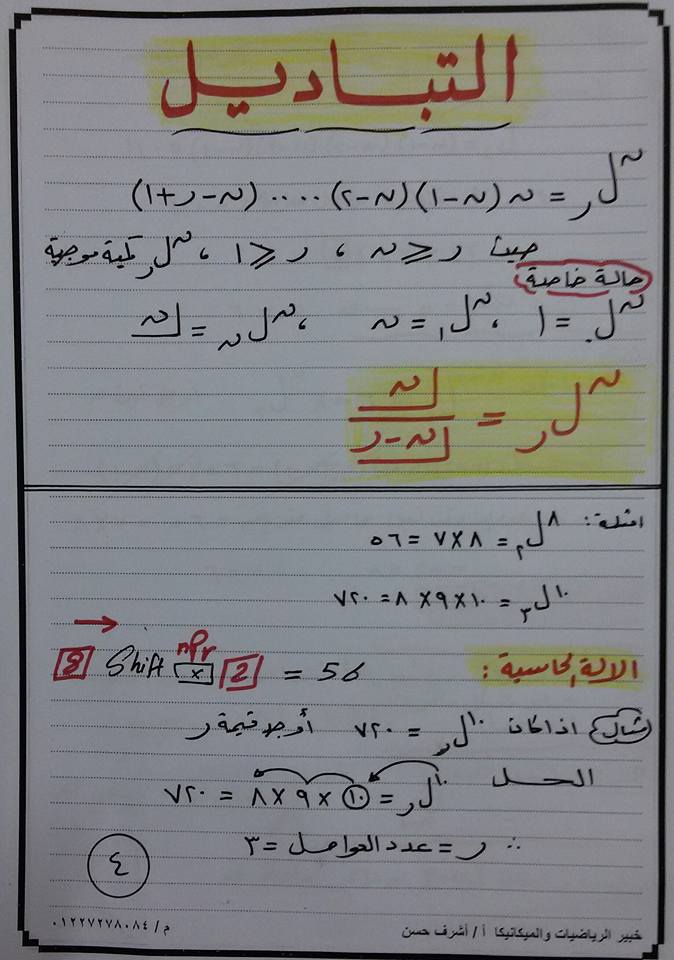 التباديل
ⁿلر = ن (ن-١) (ن-٢) .... (ن-ر+١)
حيث ر ≤ ن ، ر ≥ ١ ، ⁿلر كمية موجبة
حالة خاصة
ⁿل٠ = ١ ، ⁿل١ = ن ، ⁿلن = ∟ن
ⁿلر = ∟ن / ∟ن-ر
امثلة: ^٨ل٢ = ٨ × ٧ = ٥٦
^١٠ل٣ = ١٠ × ٩ × ٨ = ٧٢٠
الالة الحاسبة :
8 Shift nPr × 2 = 56
مثال اذا كان ^١٠لر = ٧٢٠ أوجد قيمة ر
الحل
^١٠لر = ١٠ × ٩ × ٨ = ٧٢٠
∴ ر = عدد العوامل = ٣
٤
خبير الرياضيات والميكانيكا أ / أشرف حسن م / ٠١٢٢٧٢٧٨٠٨٤